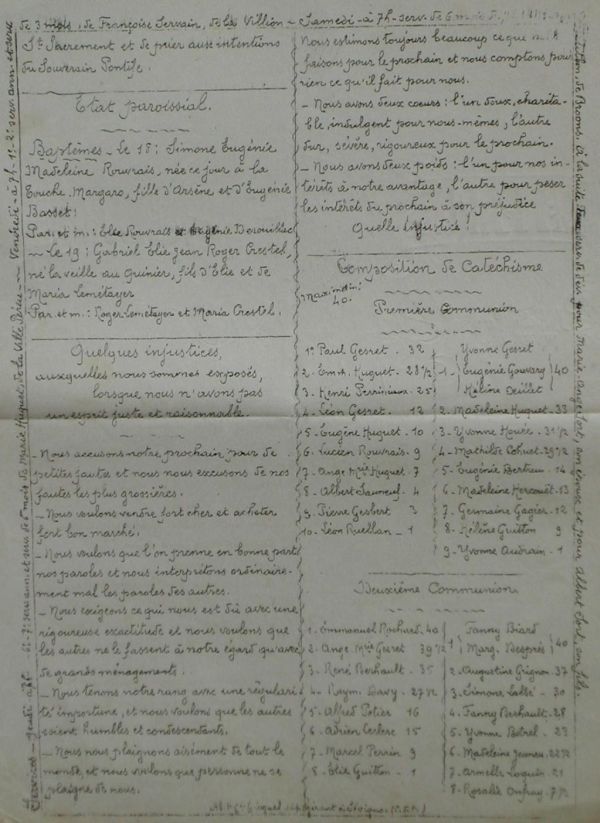 de 3 mois, de Françoise Servain, de la Villion - Samedi - à 7h. serv. de 6 mois
St Sacrement et de prier aux intentions
du Souverain Pontife.
Etat paroissial.
Baptêmes - Le 18: Simone Eugénie
Madeleine Rouvrais, née ce jour à La
Touche Margaro, fille d'Arsène et d'Eugénie
Basset;
Par. et m.: Elie Rouvrais et Eugénie Derouillac
- Le 19: Gabriel Elie Jean Roger Crestel,
né la veille au Quinier, fils d'Elie et de
Maria Lemétayer
Par. et m.: Roger Lemétayer et Maria Crestel.
Quelques injustices,
auxquelles nous sommes exposés,
lorsque nous n'avons pas
un esprit juste et raisonnable.
- Nous accusons notre prochain pour de
petites fautes et nous nous excusons de nos
fautes les plus grossières.
- Nous voulons vendre fort cher et acheter
fort bon marché.
- Nous voulons que l'on prenne en bonne part
nos paroles et nous interprétons ordinaire-
ment mal les paroles des autres.
- Nous exigeons ce qui nous est dû avec une
rigoureuse exactitude et nous voulons que
les autres ne le fassent à notre égard qu'avec
de grands ménagements.
- Nous tenons notre rang avec une régulari
té importune, et nous voulons que les autres
soient humbles et condescendants.
- Nous nous plaignons aisément de tout le
monde, et nous voulons que personne ne se
plaigne de nous.
Nous estimons toujours beaucoup ce que nous
faisons pour le prochain et nous comptons pour
rien ce qu'il fait pour nous.
- Nous avons deux coeurs: l'un doux, charita-
ble, indulgent pour nous-mêmes, l'autre
dur, sévère, rigoureux pour le prochain.
- Nous avons deux poids: l'un pour nos in-
térêts à notre avantage, l'autre pour peser
les intérêts du prochain à son préjudice
Quelle injustice!
Composition de Catéchisme
Maximum:
40.
Première Communion
1º Paul Gesret. 32
2- Emm. Huguet. 28 1/2
3. Henri Perriniaux. 25
4- Léon Gesret. 12
5- Eugène Huguet. 10
6- Lucien Rouvrais. 9
7- Ange Mie Huguet 7
8- Albert Jauneuf. 4
9. Pierre Gesbert 3
10. Léon Ruellan - 1
Yvonne Gesret
1- Eugénie Gouvary 40
Hélène Deillet
2- Madeleine Huguet. 33
3. Yvonne Houée. 31 1/2
4- Mathilde Cohuet. 29 1/2
5- Eugénie Bertheu 14
6- Madeleine Hercouët. 13
7- Germaine Gagier. 12
8- Hélène Guitton 9
9- Yvonne Audrain. 1
Deuxième Communion
1- Emmanuel Rochard. 40
2- Ange Mie Gesret 39 1/2
3- René Berhault. 35
4- Raym. Davy. 27 1/2
5- Alfred Potier 16
6- Adrien Leclerc 15
7- Marcel Perrin 9
8- Elie Guitton. 1
1 Fanny Biard
Marg. Després 40
2- Augustine Grignon. 37
3- Simone Labbé. 30
4- Fanny Berhault. 28
5. Yvonne Botrel. 23
6- Madeleine Jeuneu. 22 1/2
7- Armelle Loquin. 21
8- Rosalie Onfray. 7 1/2